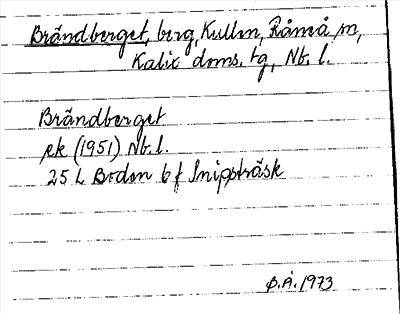 Brändberget, berg, Kullen, Råneå sn,
Kalix doms. tg, Nb. l.
Brändberget
ek (1951) Nb. l.
25 L Boden bf Snipträsk
Ö.Å. 1973